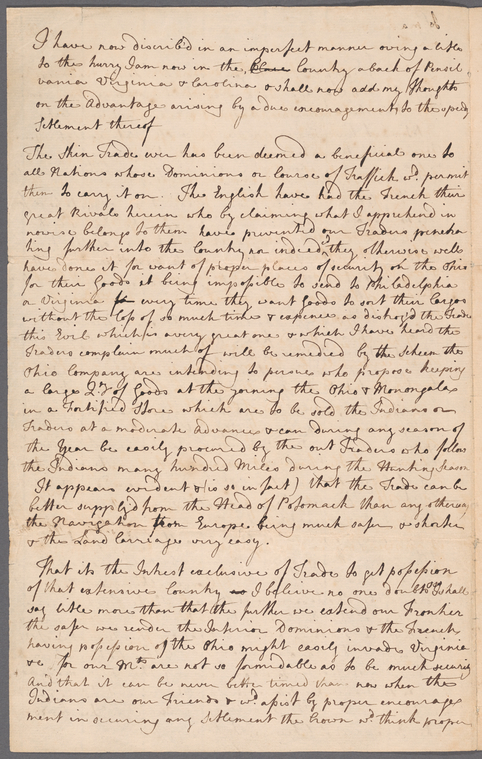 I have now discrib'd in an imperfect manner owing a little
to the hurry I am now in the Country aback of Pensil
vania Virginia & Carolina & shall now add my Thoughts
on the Advantage arising by a due encouragement to the speedy
Setlement thereof
The Skin Trade ever has been deemed a beneficial one to
all Nations whose Dominions or Course of Traffick wd. permit
them to carry it on. The English have had the French their
great Rivals herein who by claiming what I apprehend in
nowise belongs to them have prevented our Traders penetra
ting further into the Country nor indeed cd. they otherwise well
have done it for want of proper places of security on the Ohio
for their Goods it being impossible to send to Philadelphia
or Virginia every time they want Goods to sort their Cargos
without the loss of so much time & expence as distroy'd the Trade
this Evil which is a very great one & which I have heard the
Traders complain much of will be remedied by the Scheem the
Ohio Company are intending to pursue who propose keeping
a large Qty of Goods at the joining the Ohio & Monongala
in a Fortified Store which are to be sold the Indians or
Traders at a moderate Advance & can during any season of
the Year be easily procured by the out Traders who follow
the Indians many hundred Miles during the Hunting Season
It appears evident & (is so in fact) that the Trade can be
better supply'd from the Head of Potomack than any otherway
the Navigation from Europe being much safer & shorter
& the Land Carriage very easy.
That its the Intrest exclusive of Trade to get possession
of that extensive Country I believe no one doubts so I shall
say little more than that the further we extend our Frontier
the safer we render the Interior Dominions & the French
having possession of the Ohio might easily invade Virginia
&c for our Mts. are not so formidable as to be much security
And that it can be never better timed than now when the
Indians are our Friends & wd. assist by proper encourage
ment in securing any Setlement the Crown wd. think proper